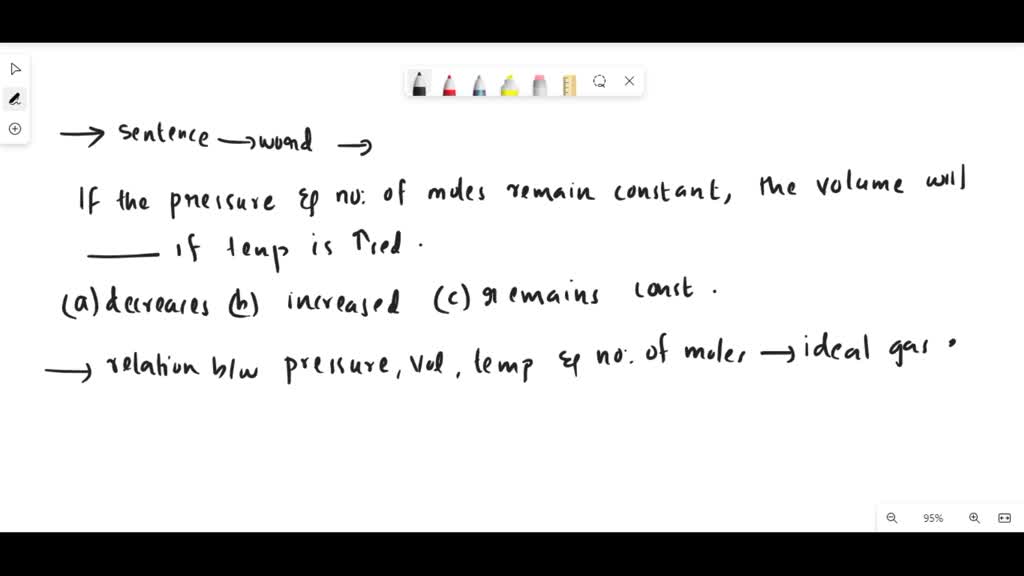 → sentence → word →
If the pressure & no: of moles remain constant, the volume will
____ if temp is ↑sed.
(a) decreases (b) increased (c) remains const.
→ relation b/w pressure, vol, temp & no: of moles → ideal gas.
95%